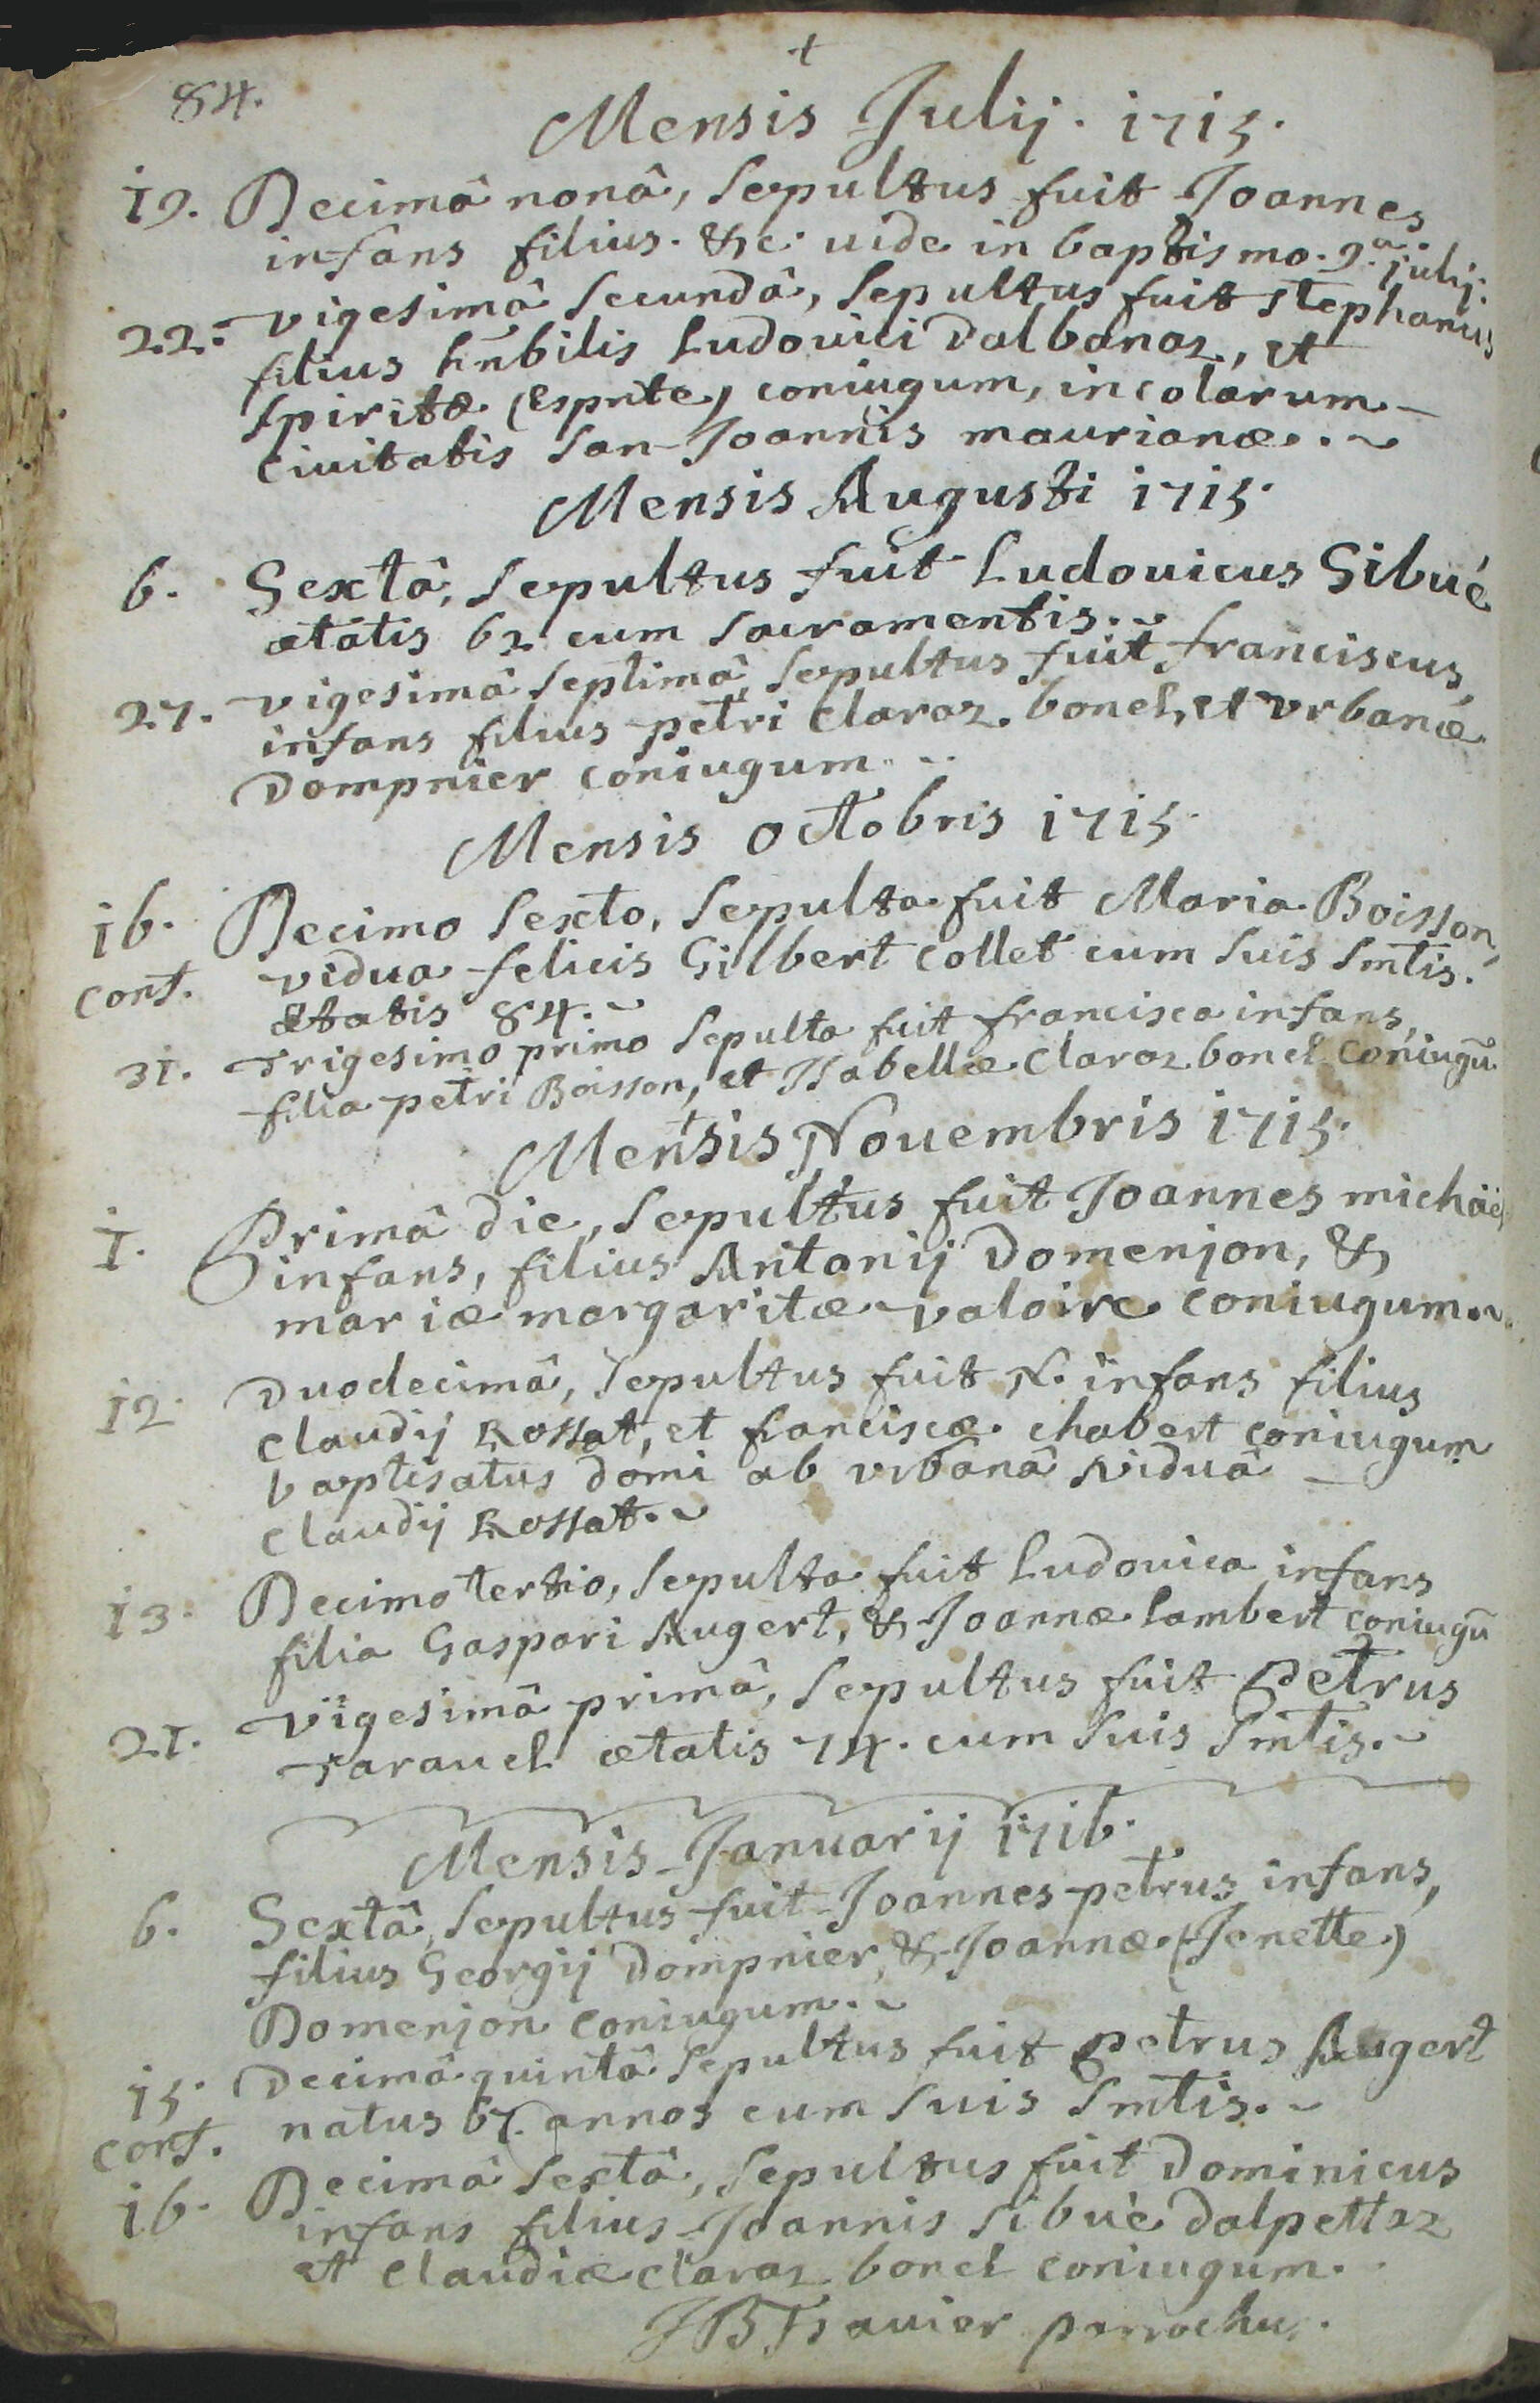 84.
+
Mensis Julij. 1715.
19. Decimâ nonâ, sepultus fuit Joannes
infans filius. &c. uide in baptismo. 9.a julij.
22. vigesimâ secundâ, sepultus fuit stephanus
filius hnbilis Ludouici Dalbanaz, et
spiritæ (esprite) coniugum, incolarum
ciuitatis san-Joannis maurianæ.
Mensis Augusti 1715.
6. Sextâ, sepultus fuit Ludouicus Sibué
ætatis 62 cum sacramentis.
27. vigesimâ septimâ, sepultus fuit franciscus,
infans filius petri Claraz. bonel, et vrbanæ
Dompnier coniugum
Mensis octobris 1715.
16. Decimo sexto, sepulta fuit Maria Boisson,
conf. vidua felicis Gilbert Collet cum suis smtis.
ætatis 84.
31. Trigesimo primo sepulta fuit francisca infans,
filia petri Boisson, et Isabellæ Claraz bonel coniugū
Mensis Nouembris 1715.
1. Primâ die, sepultus fuit Joannes michäel
infans, filius Antonij Domenjon, &
mariæ margaritæ valoire coniugum.
12. Duodecimâ, sepultus fuit N. infans filius
Claudij Rossat, et franciscæ chabert coniugum
baptisatus domi ab vrbanâ viduâ
Claudij Rossat.
13. Decimo tertio, sepulta fuit Ludouica infans
filia Gaspari Augert, & Joannæ Lambert coniugū
21. vigesimâ primâ, sepultus fuit petrus
Tarauel ætatis 74. cum suis smtis.
Mensis Januarij 1716.
6. Sextâ, sepultus fuit Joannes petrus infans,
filius Georgij Dompnier, & Joannæ (Jenette)
Domenjon coniugum.
15. Decimâ quintâ sepultus fuit petrus Augert
conf. natus 67. annos cum suis smtis.
16. Decimâ sextâ, sepultus fuit Dominicus
infans filius Joannis sibué Dalpettaz
et Claudiæ Claraz bonel coniugum.
JB Trauier parrochus.